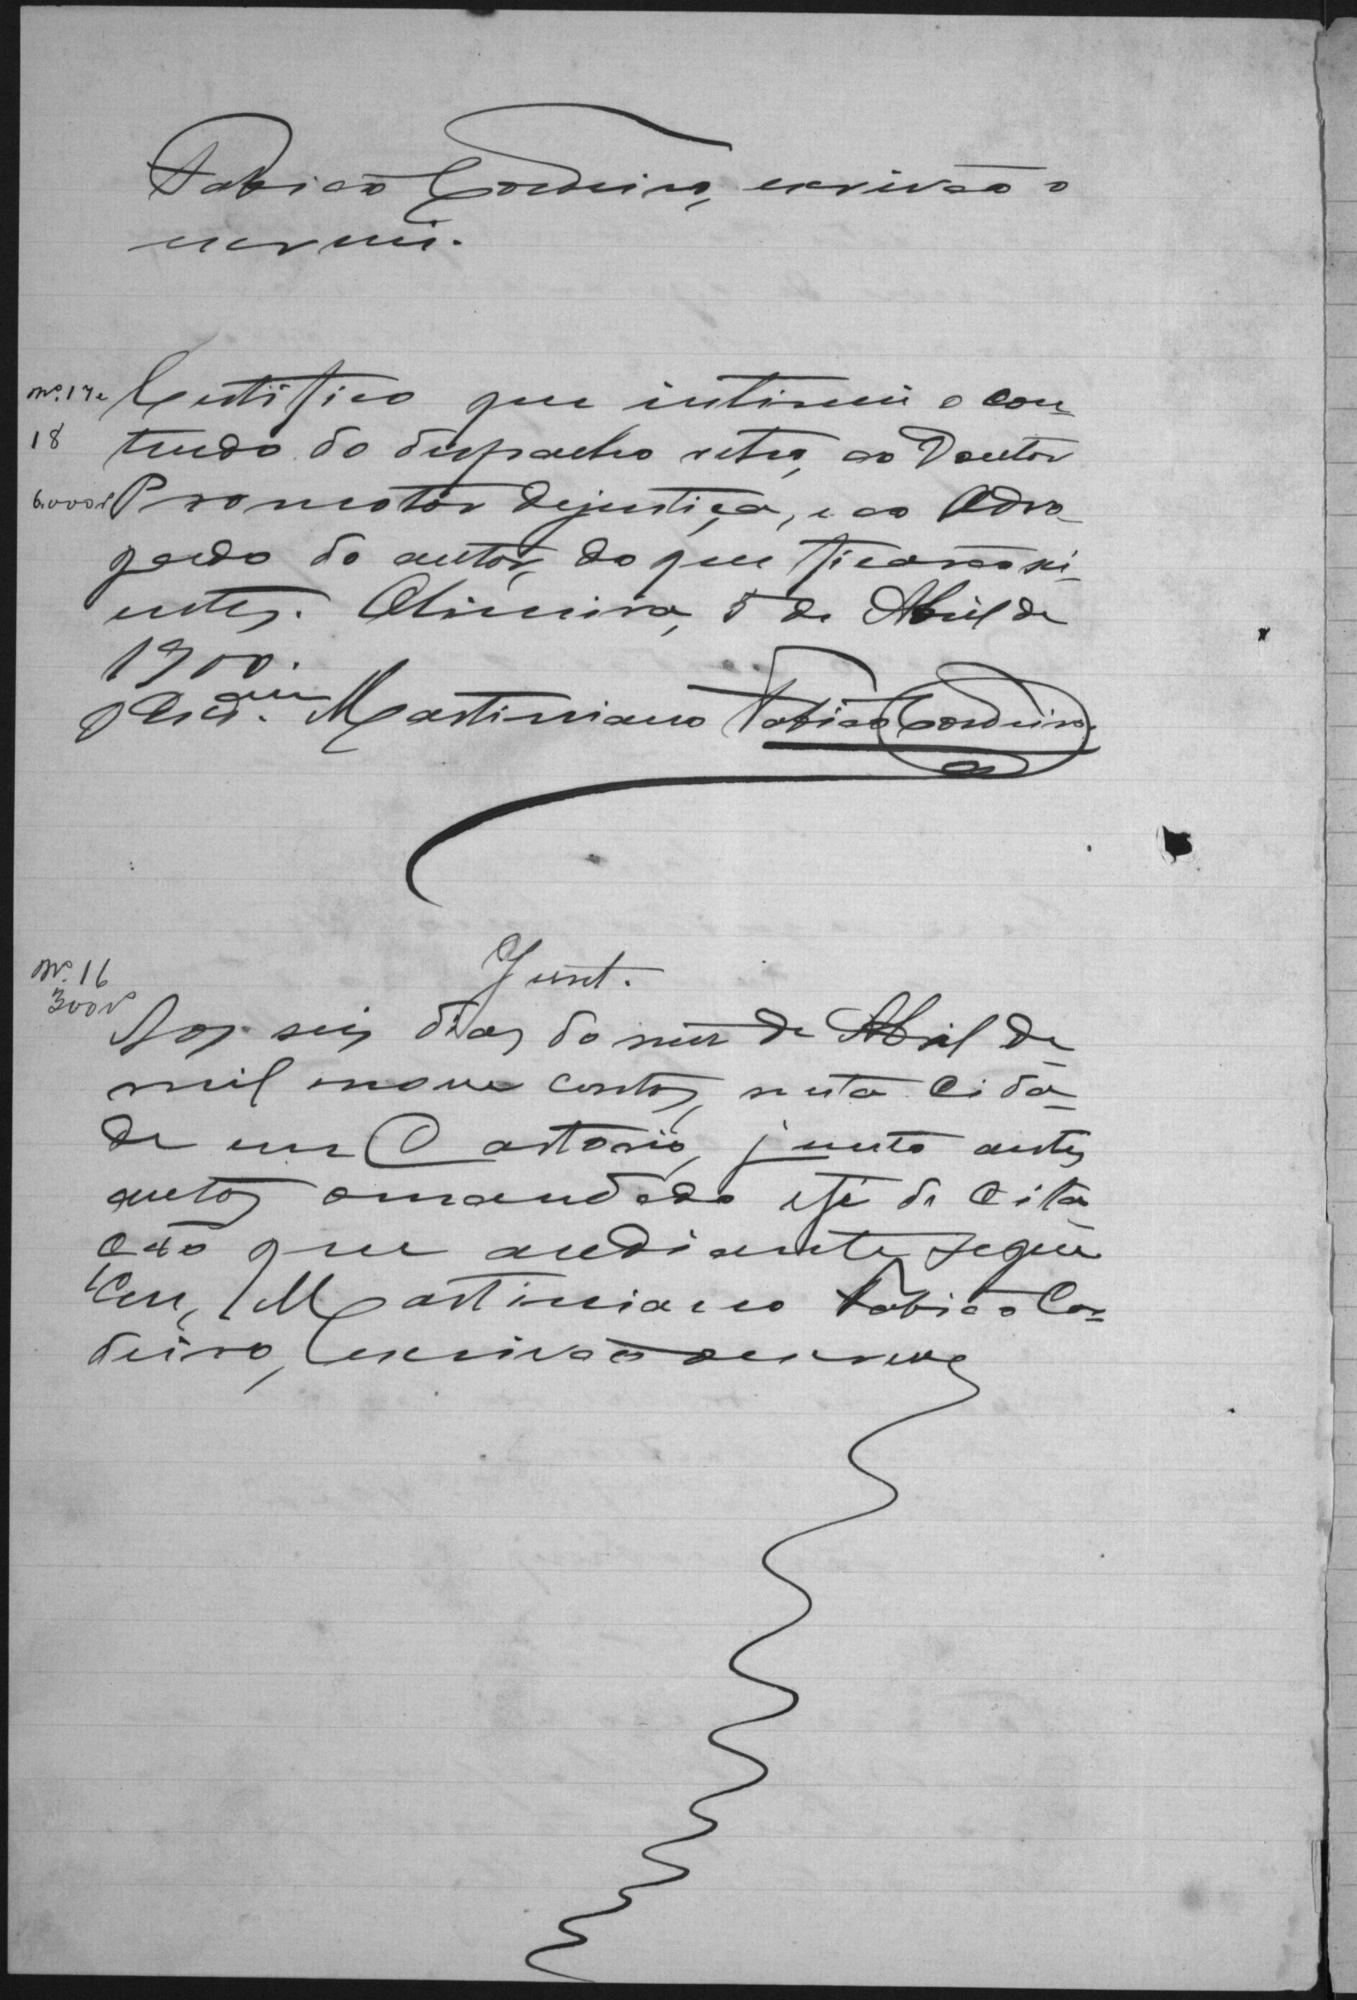 Fabião Cordeiro, escrivão o
escrevi.
Nº. 17 e
18
6.000r
Certifico que intimei o con-
teudo do despacho retro, ao Doutor
Promotor dejustiça, e ao Advo-
gado do autor, do que ficarão sci-
entes. Oliveira, 5 de Abril de
1900.
O Escrivam Martiniano Fabião Cordeiro
Nº. 16
300r
Junt.
Aos seis dias do mez de Abril de
mil e nove centos, nesta Cida-
de em Cartorio, junto a estes
autos o mandado e fé de Cita
ção que adiante segue
Eu, Martiniano Fabião Cor-
deiro, Escrivão o escrevi